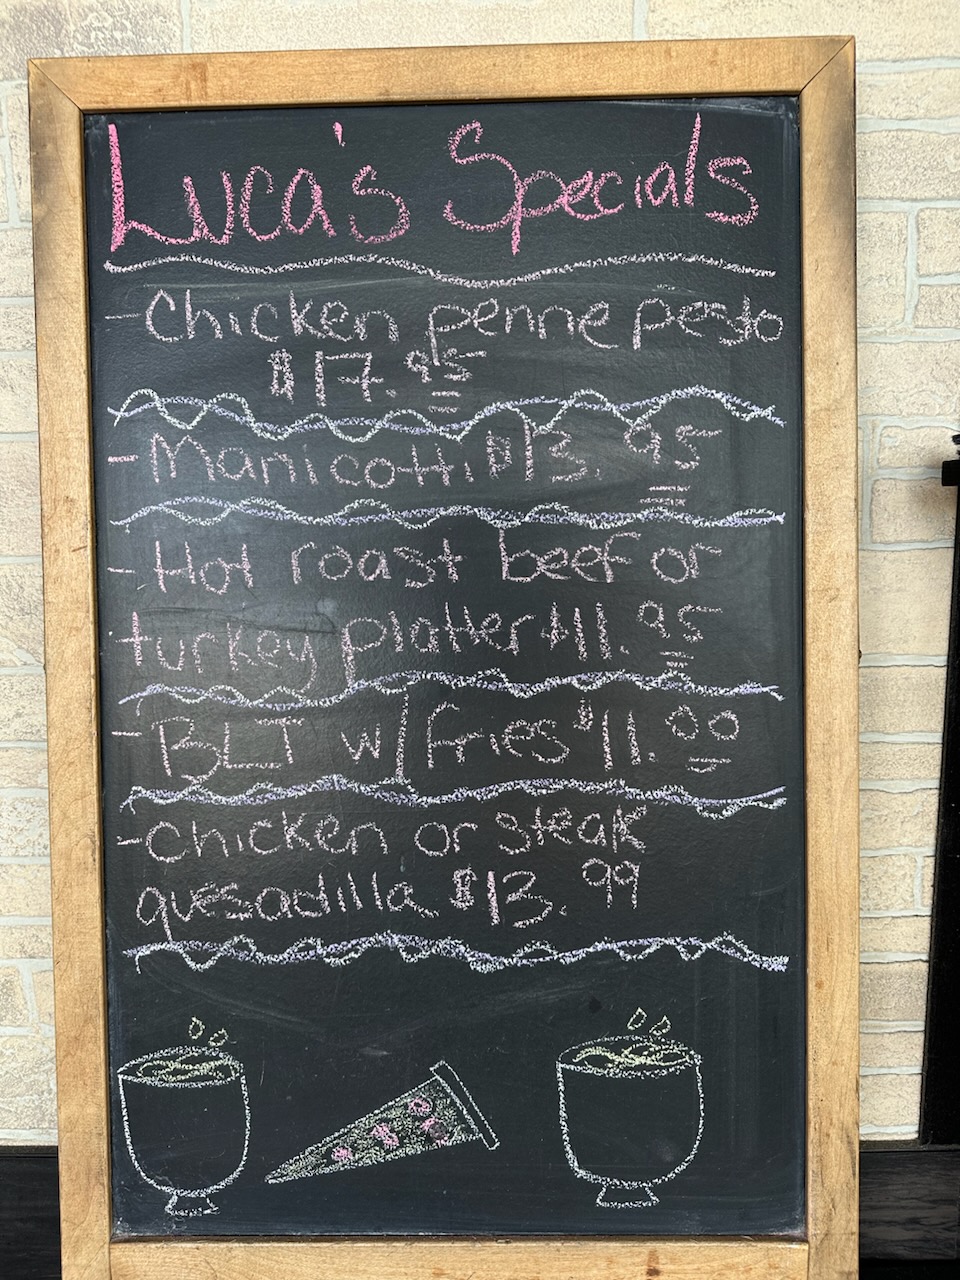 Luca's Specials
- Chicken penne pesto
$17.95
- Manicotti $13.95
- Hot roast beef or
turkey platter $11.95
- BLT w/ fries $11.00
- Chicken or steak
quesadilla $13.99